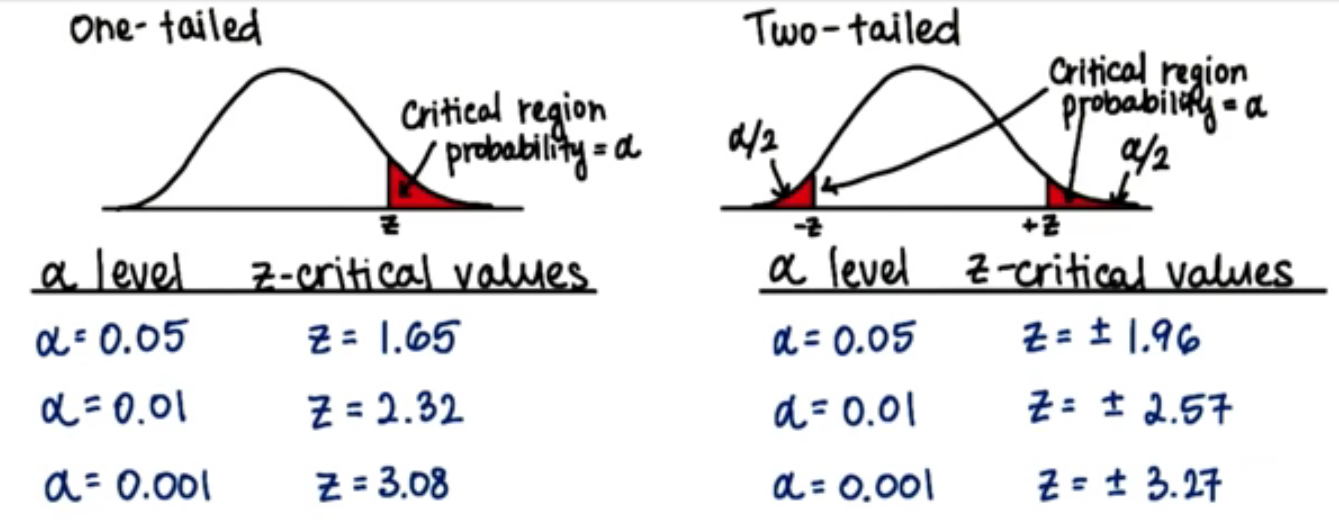 One-tailed
Critical region
probability = α
z
α level z-critical values
α = 0.05 z = 1.65
α = 0.01 z = 2.32
α = 0.001 z = 3.08
Two-tailed
Critical region
probability = α
α/2
α/2
-z
+z
α level z-critical values
α = 0.05 z = ± 1.96
α = 0.01 z = ± 2.57
α = 0.001 z = ± 3.27